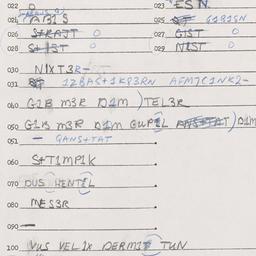 022
023 ES N.
021 ABIS 025 G1B1SN
026 S+RAJT O 027 GIST O
028 S+IST O 029 NIST O
030 NIXT3R-
031 12BAS+1K83RN AFM7C1NK2-
060 G1B M3R D1M )TEL3R
050 G1B M3R D1M GUP2L )D1M
051 — GANS+TAT
060 S+T1MP1K
070 DUS HENT2L
080 MES3R
090 —
100 VUS VEL1X DERM1T TUN